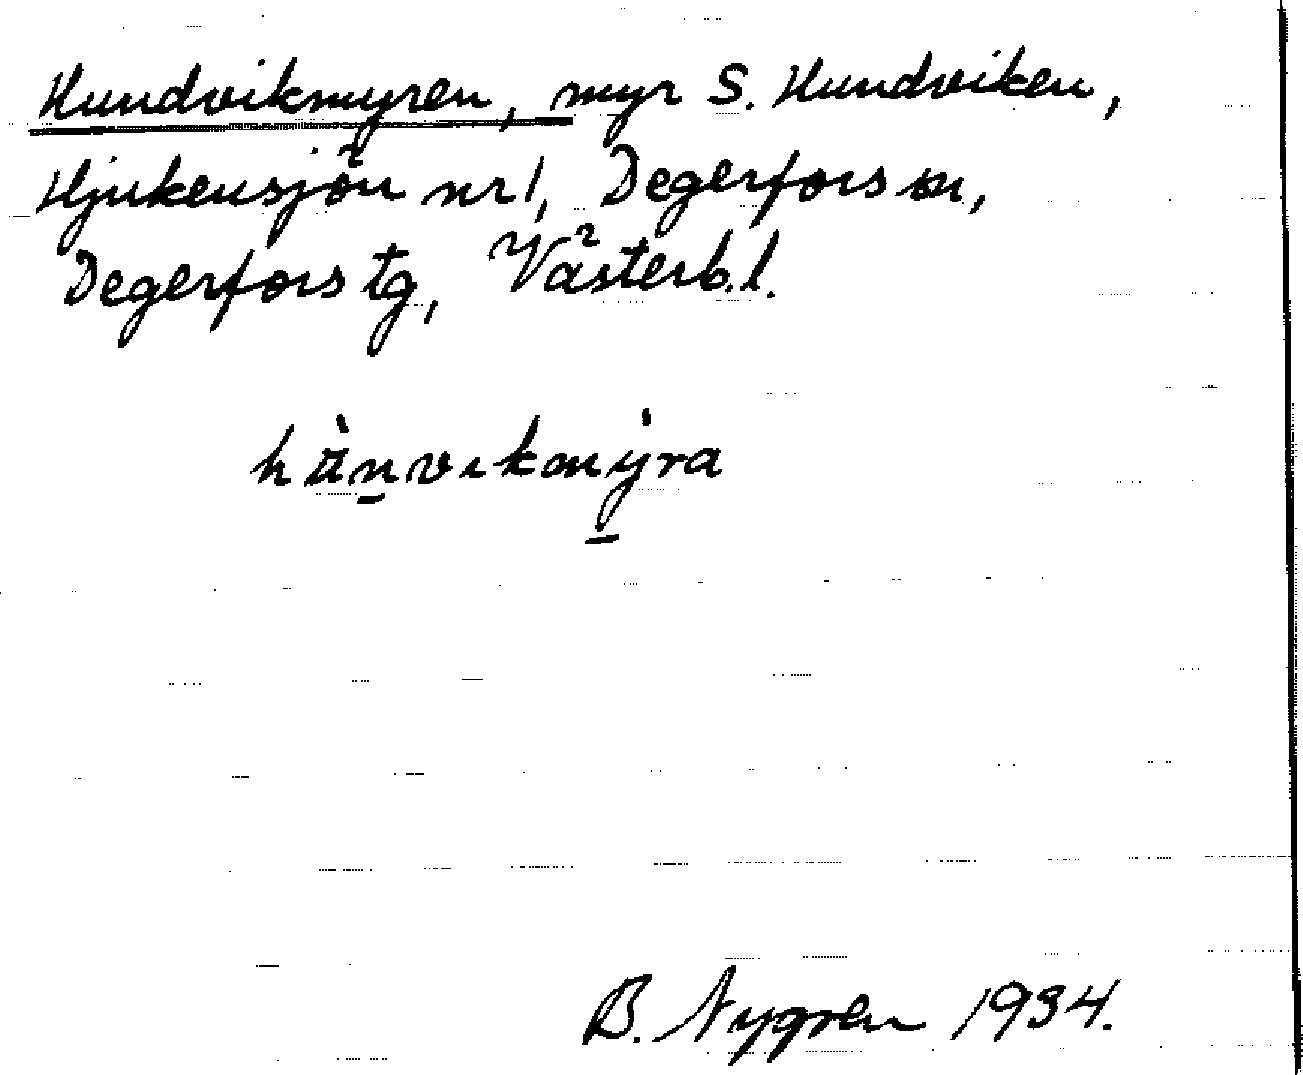 Hundvikmyren, myr S. Hundviken,
Hjukensjön nr 1, Degerfors sn,
Degerfors tg, Västerb. l.
B. Nygren 1934.